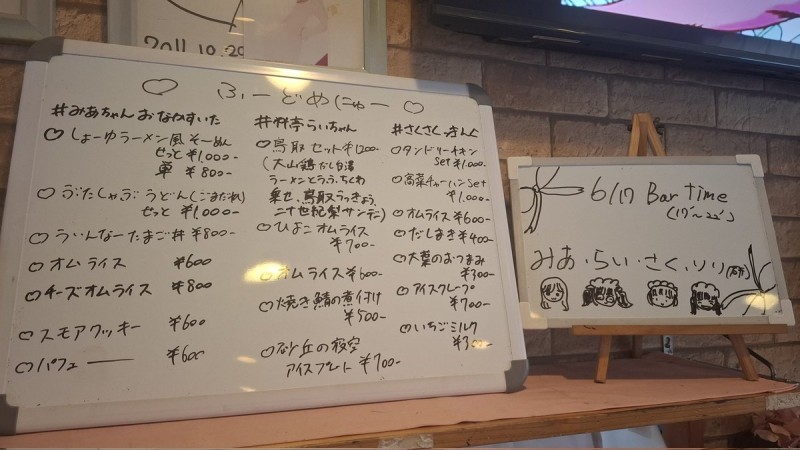 2011.10.29
ふーどめにゅー
#みあちゃんおなかすいた
しょーゆラーメン風そーめん
せっと ¥1,000-
単 ¥800-
ぶたしゃぶうどん(ごまだれ)
せっと ¥1,000-
ういんなーたまご丼 ¥800-
オムライス ¥600
チーズオムライス ¥800
スモアクッキー ¥600
パフェ ¥600
亭らいちゃん
鳥取セット ¥1200-
(大山鶏だし白湯
ラーメンとうふちくわ
乗せ、鳥取らっきょう、
二十世紀梨サンデ)
ひよこオムライス
¥700-
オムライス ¥600-
焼き鯖の煮付け
¥500-
砂丘の夜空
アイスプレート ¥700-
#さくさくっきんぐ
タンドリーチキン
set ¥1,000-
高菜チャーハンset
¥1,000-
オムライス ¥600-
だしまき ¥400-
大葉のおつまみ
¥300-
アイスクレープ
¥700-
いちごミルク
¥300-
6/17 Bar time
(17'~22')
みあ・らい・さく・りり